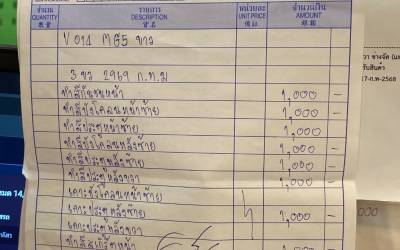 จำนวน รายการ หน่วยละ จำนวนเงิน
QUANTITY DESCRIPTION UNIT PRICE AMOUNT
V 014 MG5 ขาว
3 ขว 2969 ก.ท.ม
ทำสีกันชนหน้า 1,000 -
ทำสีบังโคลนหน้าซ้าย 1,000 -
ทำสีประตูหน้าซ้าย 1,000 -
ทำสีบังโคลนหลังซ้าย 1,000 -
ทำสีประตูหลังซ้าย 1,000 -
ทำสีประตูหลังขวา 1,000 -
เคาะบังโคลนหน้าซ้าย
เคาะประตูหลังซ้าย 1,000 -
เคาะประตูหลังขวา
ช่างจัด
รับสินค้า
7-ก.พ-2568